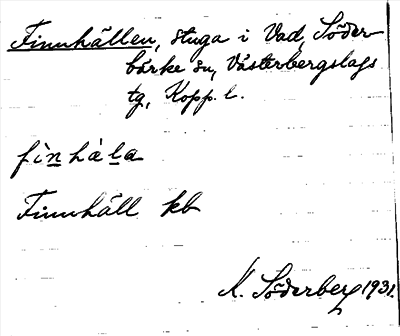 Finnhällen, stuga i Vad, Söder-
bärke sn, Västerbergslags
tg, Kopp. l.
fìnhàla
Finnhäll kb
K. Söderberg 1931.